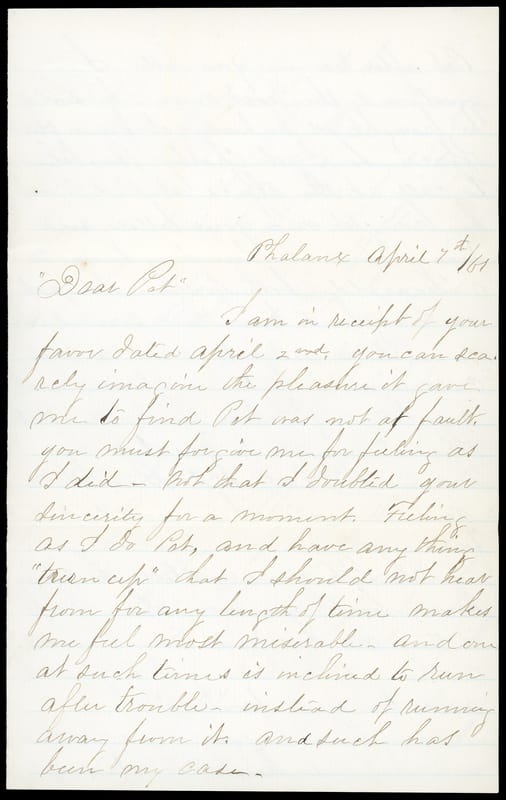 Phalanx April 7th /61
"Dear Pet"
I am in receipt of your
favor dated April 2nd. you can sca-
rcly imagine the pleasure it gave
me to find Pet was not at fault.
you must forgive me for feeling as
I did - Not that I doubted your
sincerity for a moment. Feeling
as I do Pet, and have any thing
"turn up" that I should not hear
from for any length of time makes
me feel most miserable - and one
at such times is inclined to run
after trouble - instead of running
away from it. and such has
been my case -